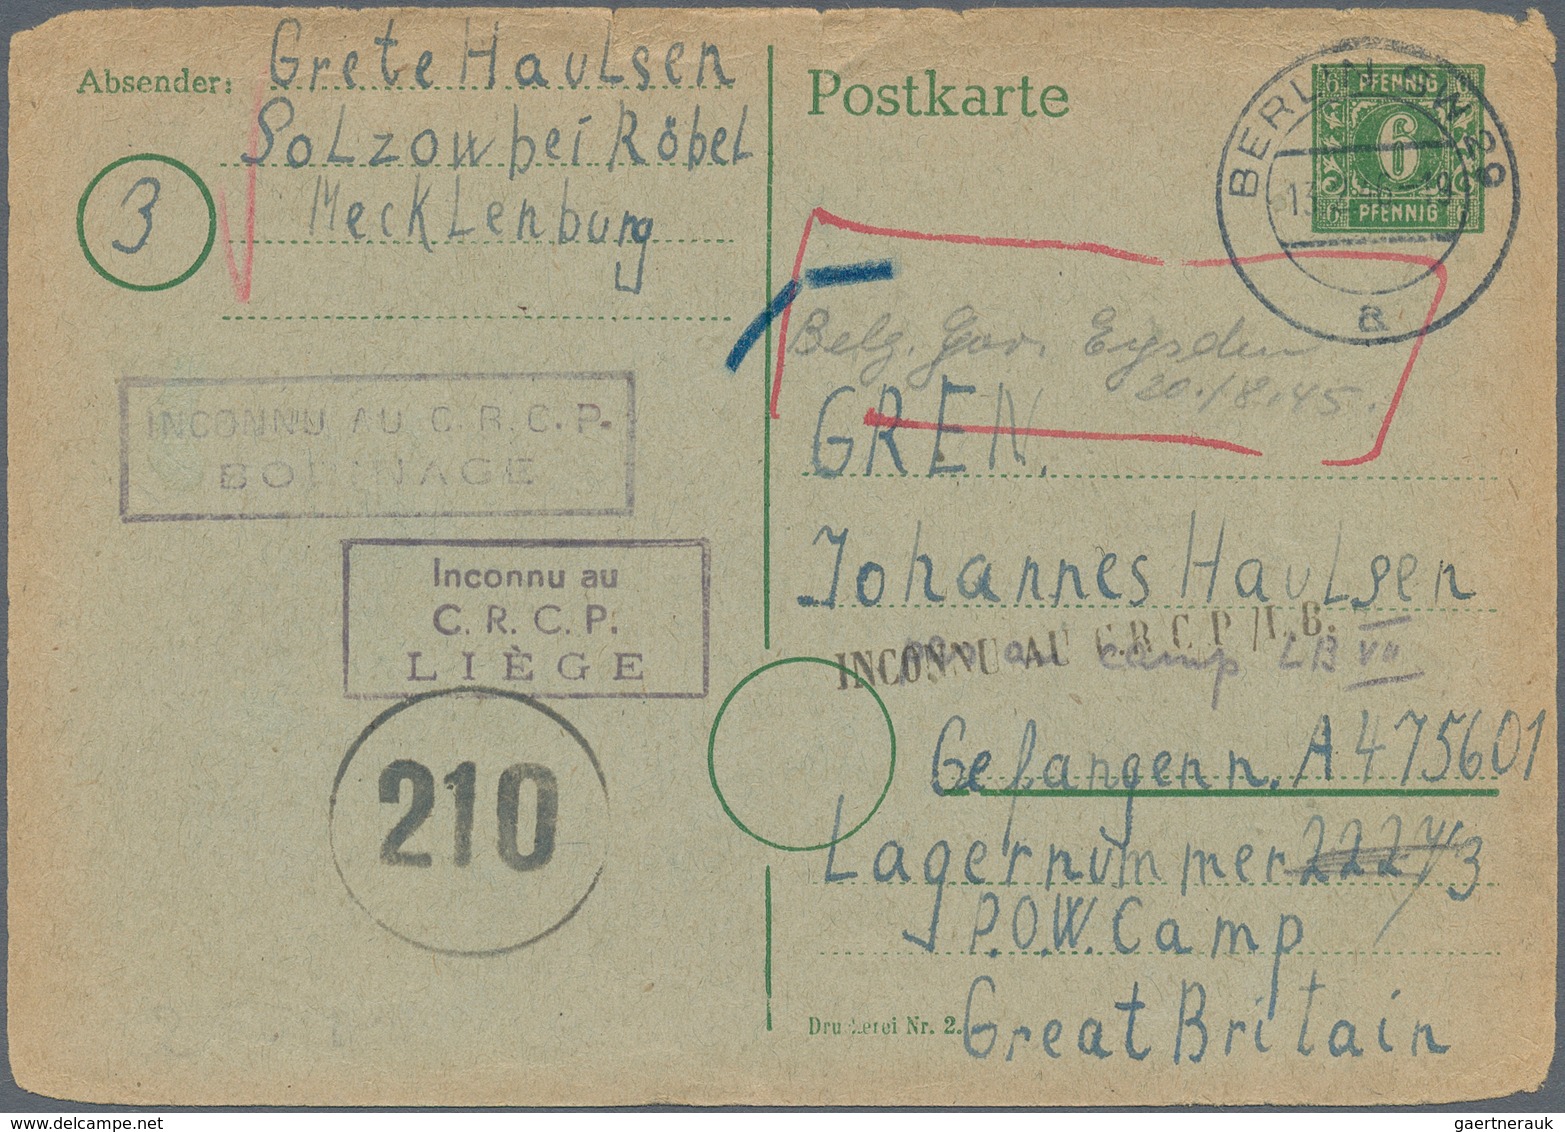 Absender:
Grete Haulsen
Solzow bei Röbel
Mecklenburg
3
INCONNU AU C.R.C.P.
BORINAGE
Inconnu au
C.R.C.P.
LIÈGE
210
Postkarte
PFENNIG
6
PFENNIG
BERLIN SW 29
a
Belg. Gov. Eysden
20./8.45.
GREN.
Johannes Haulsen
INCONNU AU C.R.C.P./L.B.
camp LB VII
Gefangenn. A475601
Lagernummer 222 3
P.O.W. Camp
Great Britain
Druckerei Nr. 2.
delcampe.net
gaertnerauk